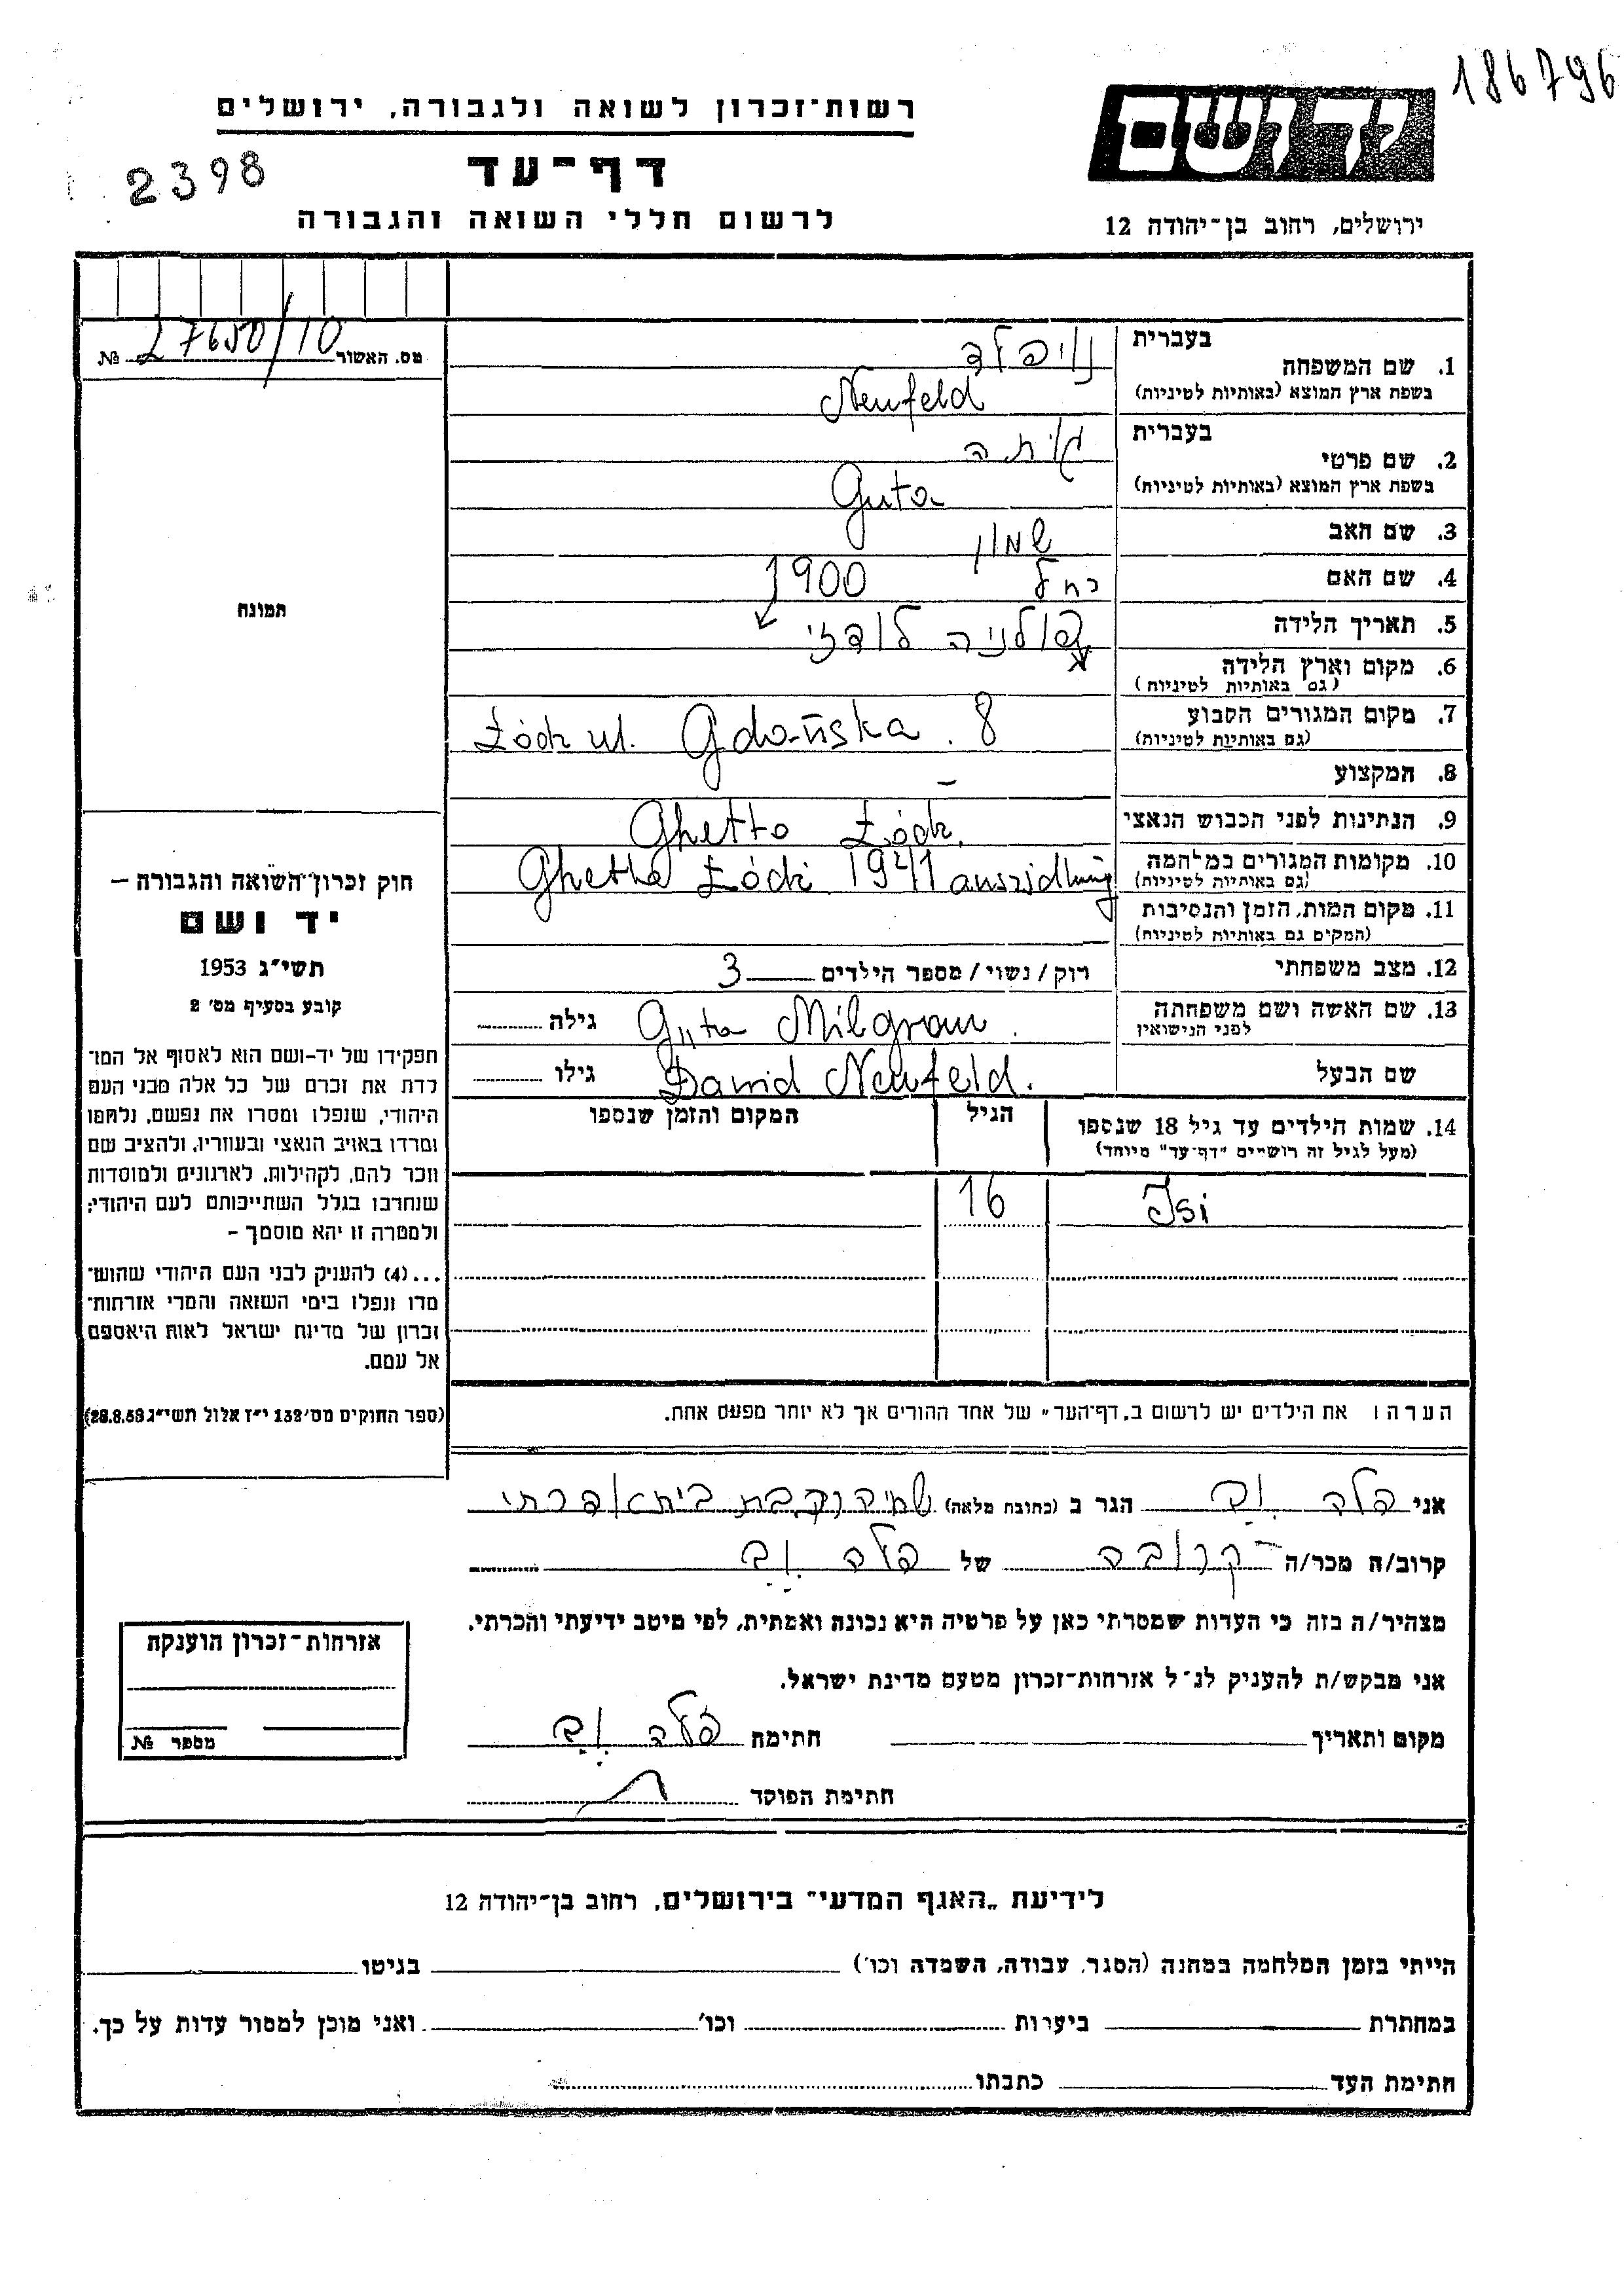 186796
רשות־זכרון לשואה ולגבורה, ירושלים
יד ושם
2398
דף־עד
לרשום חללי השואה והגבורה
ירושלים, רחוב בן־יהודה 12
מס. האשור 27650/10 №
תמונה
1. שם המשפחה
בעברית נויפלד
בשפת ארץ המוצא (באותיות לטיניות) Neufeld
2. שם פרטי
בעברית גוטה
בשפת ארץ המוצא (באותיות לטיניות) Guta
3. שם האב שמעון
4. שם האם רחל
5. תאריך הלידה 1900
6. מקום וארץ הלידה פולניה לודז'
(גם באותיות לטיניות)
7. מקום המגורים הקבוע Łódź ul. Gdańska. 8
(גם באותיות לטיניות)
8. המקצוע –
9. הנתינות לפני הכבוש הנאצי
10. מקומות המגורים במלחמה Ghetto Łódź.
(גם באותיות לטיניות)
11. מקום המות, הזמן והנסיבות Ghetto Łódź 1941
(המקום גם באותיות לטיניות)
12. מצב משפחתי רוק/נשוי/מספר הילדים 3
13. שם האשה ושם משפחתה Guta Milgrom. גילה
לפני הנישואין
שם הבעל Dawid Neufeld. גילו
14. שמות הילדים עד גיל 18 שנספו הגיל המקום והזמן שנספו
(מעל לגיל זה רושמים "דף־עד" מיוחד)
Isi 16
הערה: את הילדים יש לרשום ב„דף־העד" של אחד ההורים אך לא יותר מפעם אחת.
חוק זכרון־השואה והגבורה –
יד ושם
תשי"ג 1953
קובע בסעיף מס' 2
תפקידו של יד-ושם הוא לאסוף אל המו־
לדת את זכרם של כל אלה מבני העם
היהודי, שנפלו ומסרו את נפשם, נלחמו
ומרדו באויב הנאצי ובעוזריו, ולהציב שם
וזכר להם, לקהילות, לארגונים ולמוסדות
שנחרבו בגלל השתייכותם לעם היהודי;
ולמטרה זו יהא מוסמך –
...(4) להעניק לבני העם היהודי שהוש־
מדו ונפלו בימי השואה והמרי אזרחות־
זכרון של מדינת ישראל לאות היאספם
אל עמם.
(ספר החוקים מס' 132 י"ז אלול תשי"ג 28.8.53)
אני הגר ב (כתובת מלאה)
קרוב/ה מכר/ה קרובה של
מצהיר/ה בזה כי העדות שמסרתי כאן על פרטיה היא נכונה ואמתית, לפי מיטב ידיעתי והכרתי.
אני מבקש/ת להעניק לנ"ל אזרחות־זכרון מטעם מדינת ישראל.
מקום ותאריך חתימה
חתימת הפוקד
אזרחות־זכרון הוענקה
מספר №
לידיעת „האגף המדעי" בירושלים, רחוב בן־יהודה 12
הייתי בזמן המלחמה במחנה (הסגר, עבודה, השמדה וכו') בגיטו
במחתרת ביערות וכו' ואני מוכן למסור עדות על כך.
חתימת העד כתבתו